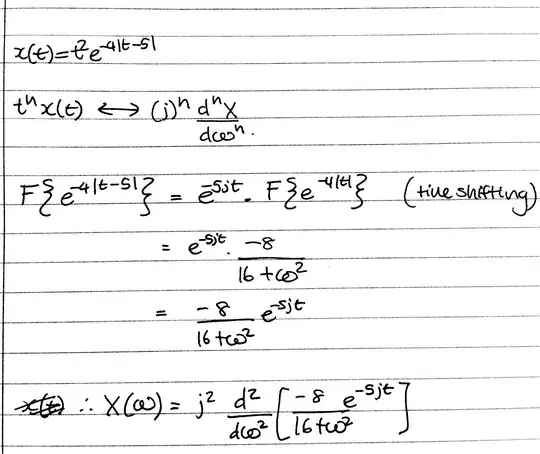 x(t)=t²e^{-4|t-5|}
tⁿx(t) ⟷ (j)ⁿ dⁿX/dωⁿ.
F{e^{-4|t-5|}} = e^{-5jt} . F{e^{-4|t|}} (time shifting)
= e^{-5jt} . -8/(16+ω²)
= -8/(16+ω²) e^{-5jt}
∴ X(ω) = j² d²/dω² [-8 e^{-5jt}/(16+ω²)]